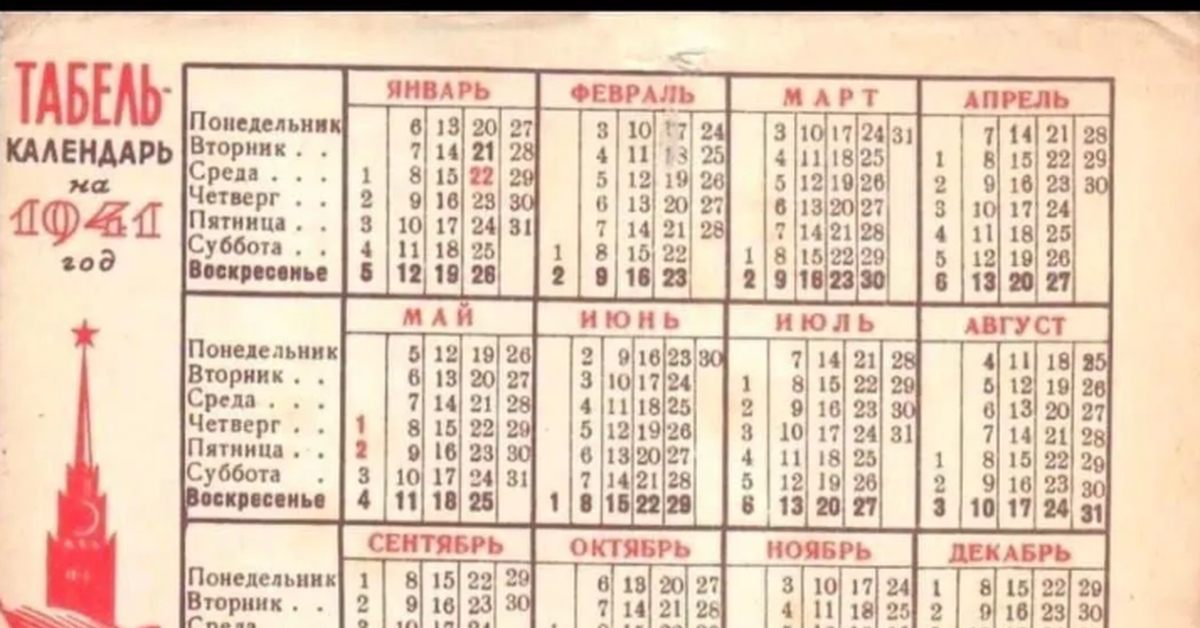 ТАБЕЛЬ-
КАЛЕНДАРЬ
на
1941
год
ЯНВАРЬ ФЕВРАЛЬ МАРТ АПРЕЛЬ
Понедельник 6 13 20 27 3 10 17 24 3 10 17 24 31 7 14 21 28
Вторник . . 7 14 21 28 4 11 18 25 4 11 18 25 1 8 15 22 29
Среда . . . 1 8 15 22 29 5 12 19 26 5 12 19 26 2 9 16 23 30
Четверг . . 2 9 16 23 30 6 13 20 27 6 13 20 27 3 10 17 24
Пятница . . 3 10 17 24 31 7 14 21 28 7 14 21 28 4 11 18 25
Суббота . . 4 11 18 25 1 8 15 22 1 8 15 22 29 5 12 19 26
Воскресенье 5 12 19 26 2 9 16 23 2 9 16 23 30 6 13 20 27
МАЙ ИЮНЬ ИЮЛЬ АВГУСТ
Понедельник 5 12 19 26 2 9 16 23 30 7 14 21 28 4 11 18 25
Вторник . . 6 13 20 27 3 10 17 24 1 8 15 22 29 5 12 19 26
Среда . . . 7 14 21 28 4 11 18 25 2 9 16 23 30 6 13 20 27
Четверг . . 1 8 15 22 29 5 12 19 26 3 10 17 24 31 7 14 21 28
Пятница . . 2 9 16 23 30 6 13 20 27 4 11 18 25 1 8 15 22 29
Суббота . 3 10 17 24 31 7 14 21 28 5 12 19 26 2 9 16 23 30
Воскресенье 4 11 18 25 1 8 15 22 29 6 13 20 27 3 10 17 24 31
СЕНТЯБРЬ ОКТЯБРЬ НОЯБРЬ ДЕКАБРЬ
Понедельник 1 8 15 22 29 6 13 20 27 3 10 17 24 1 8 15 22 29
Вторник . . 2 9 16 23 30 7 14 21 28 4 11 18 25 2 9 16 23 30